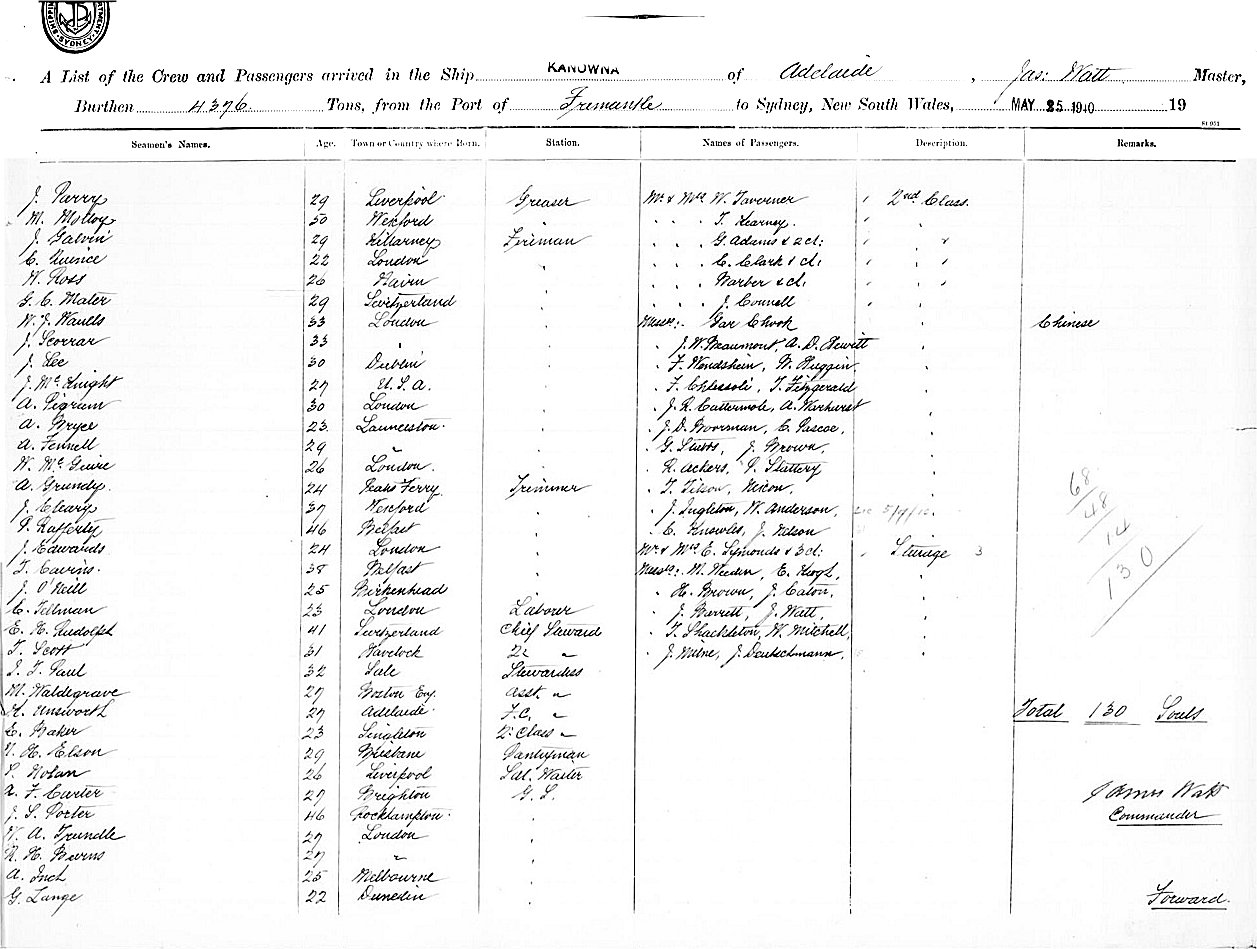 SYDNEY
A List of the Crew and Passengers arrived in the Ship KANOWNA of Adelaide, Jas: Watt Master,
Burthen 4376 Tons, from the Port of Fremantle to Sydney, New South Wales, MAY 25 1910 19
Seamen's Names. Age. Town or Country where Born. Station. Names of Passengers. Description. Remarks.
J. Parry 29 Liverpool Greaser Mr & Mrs W. Taverner " 2nd Class
M. Molloy 50 Wexford " " " T. Kearney " "
J. Galvin 29 Killarney Fireman " " " G. Adams & 2 ch: " " "
C. Quince 22 London " " " " C. Clark 1 ch: " " "
W. Ross 26 Nairn " " " " Barber & ch: " " "
G. C. Mater 29 Switzerland " " " " J. Connell " "
W. J. Waulls 33 London " Messrs: Gar Chook " Chinese
J. Scorrar 33 " " " J. W. Beaumont, A. D. Hewitt "
J. Lee 30 Dublin " " F. Wondshein, W. Huggin "
J. McKnight 27 U. S. A. " " F. , T. Fitzgerald "
A. Pigrum 30 London " " J. R. Cattermole, A. Warhurst "
A. Bryce 23 Launceston " " J. D. Boorman, C. Pascoe, "
A. Fennell 29 " " " G. Stubbs, J. Brown, "
W. McGuire 26 London " " R. Ackers, P. Slattery "
A. Grundy 24 Ferry Trimmer " T. Tilson, Nixon, "
J. Cleary 37 Wexford " " J. Ingleton, W. Anderson, "
P. Rafferty 46 Belfast " " C. Knowles, J. Nelson "
J. Edwards 24 London " Mr & Mrs E. Symonds & 3 ch: " Steerage 3
T. Cairns 38 Belfast " Messrs: M. Heedin, E. Hogh, "
J. O'Neill 25 Birkenhead " " H. Brown, J. Eaton, "
C. Tellman 23 London Laborer " J. Barrett, J. Watt, "
E. H. Rudolph 41 Switzerland Chief Steward " T. Shackleton, W. Mitchell, "
T. Scott 31 Havelock 2: " " J. Milne, J. Deutschmann, "
J. T. Paul 32 Sale Stewardess
M. Waldegrave 27 Boston Eng. Asst. "
H. Unsworth 27 Adelaide F.C. "
E. Baker 23 Singleton 2: Class "
N. H. Elson 29 Brisbane Pantryman
P. Nolan 26 Liverpool Sal. Waiter
A. F. Carter 27 Brighton G. S.
J. S. Porter 46 Rockhampton "
W. A. Trundle 27 London "
R. H. Burns 27 " "
A. Inch 25 Melbourne "
G. Lange 22 Dunedin "
68
48
14
130
Total 130 Souls
James Watt
Commander
Forward